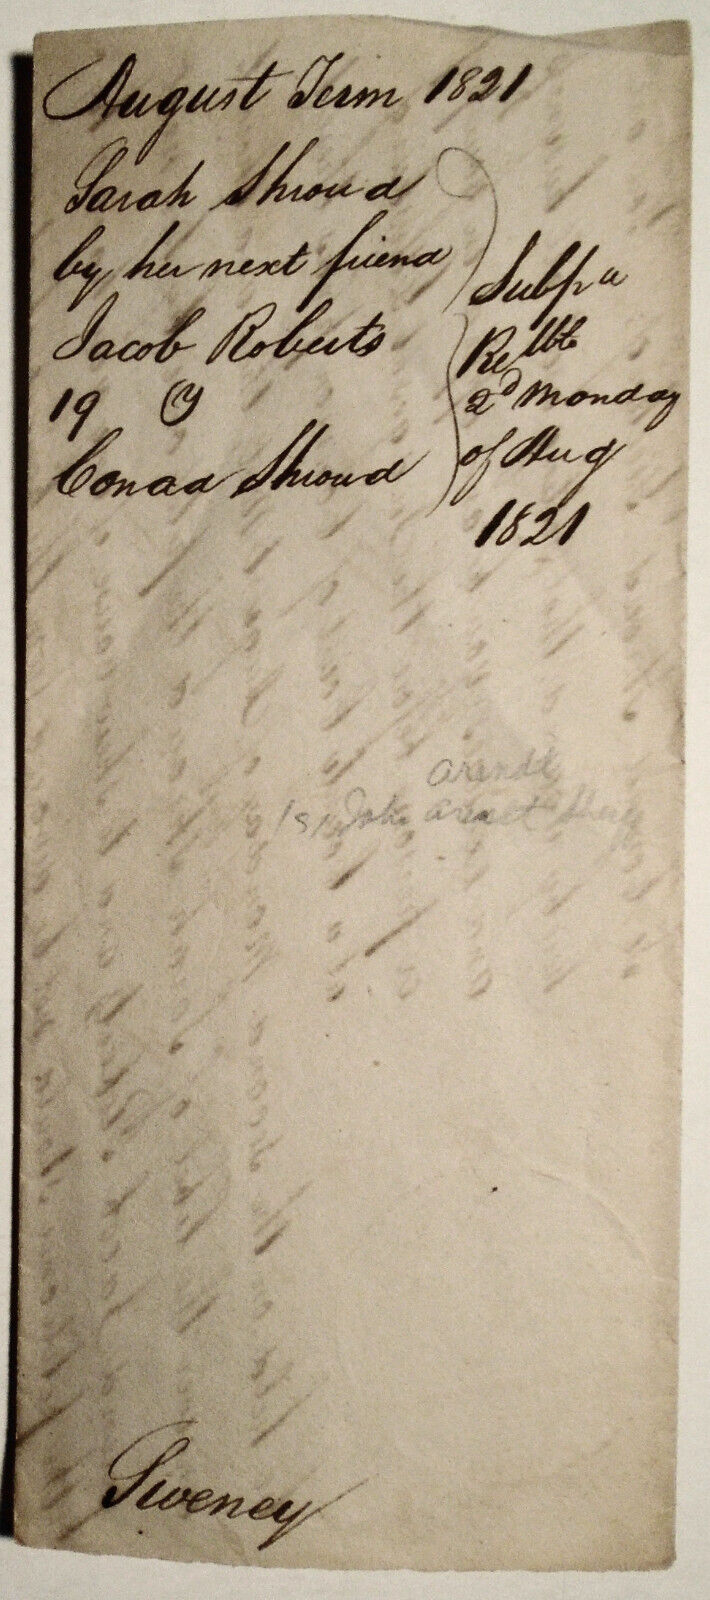 August Term 1821
Sarah Shroud
by her next friend
Jacob Roberts
19 
Conrad Shroud
Subpa
Retble
2d Monday
of Aug
1821
Arendt
John Arendt
Sweney